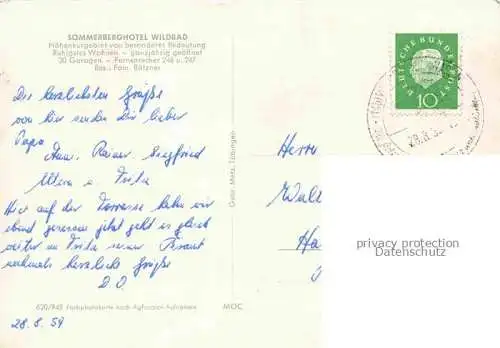 SOMMERBERGHOTEL WILDBAD
Höhenkurgebiet von besonderer Bedeutung
Ruhigstes Wohnen — ganzjährig geöffnet
30 Garagen — Fernsprecher 246 u. 247
Bes.: Fam. Bätzner
Die herzlichsten Grüße
von hier senden Dir lieber
Papa
Anm. Rainer. Siegfried
u.
Hier auf der Terrasse haben wir
eben gegessen jetzt geht es gleich
weiter
nochmals herzliche Grüße
D.O.
620/845 Farbphotokarte nach Agfacolor-Aufnahmen
MOC
28.8.59
Gebr. Metz, Tübingen
DEUTSCHE BUNDESPOST
10
28.8.5
Herrn
Ha
privacy protection
Datenschutz